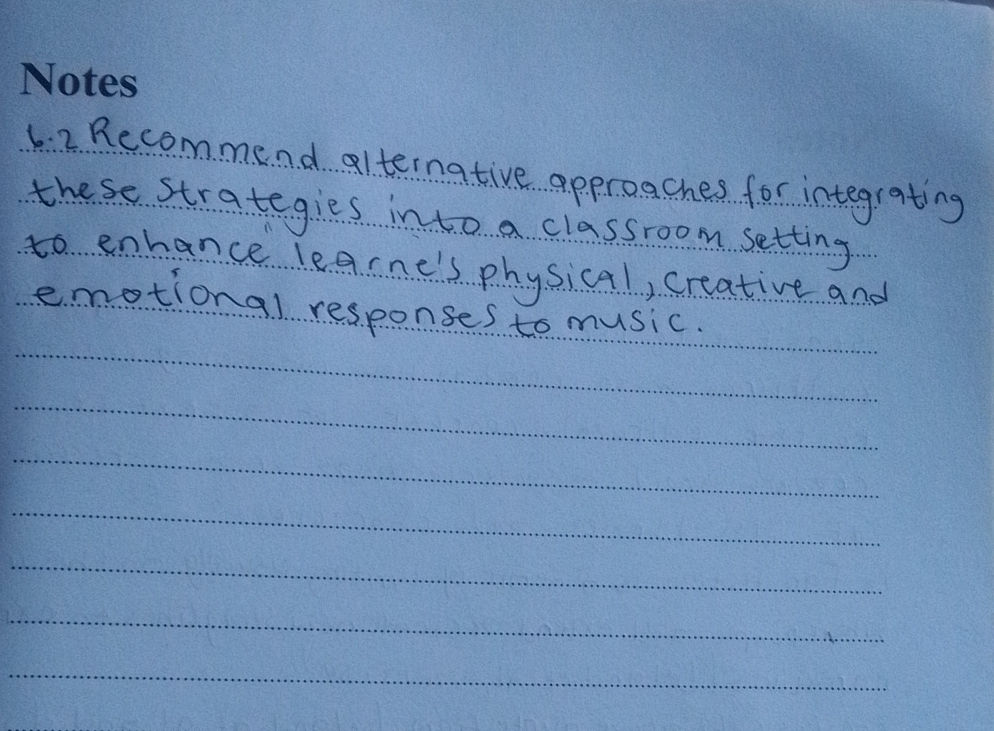 Notes
6.2 Recommend alternative approaches for integrating
these strategies into a classroom setting
to enhance learne's physical, creative and
emotional responses to music.